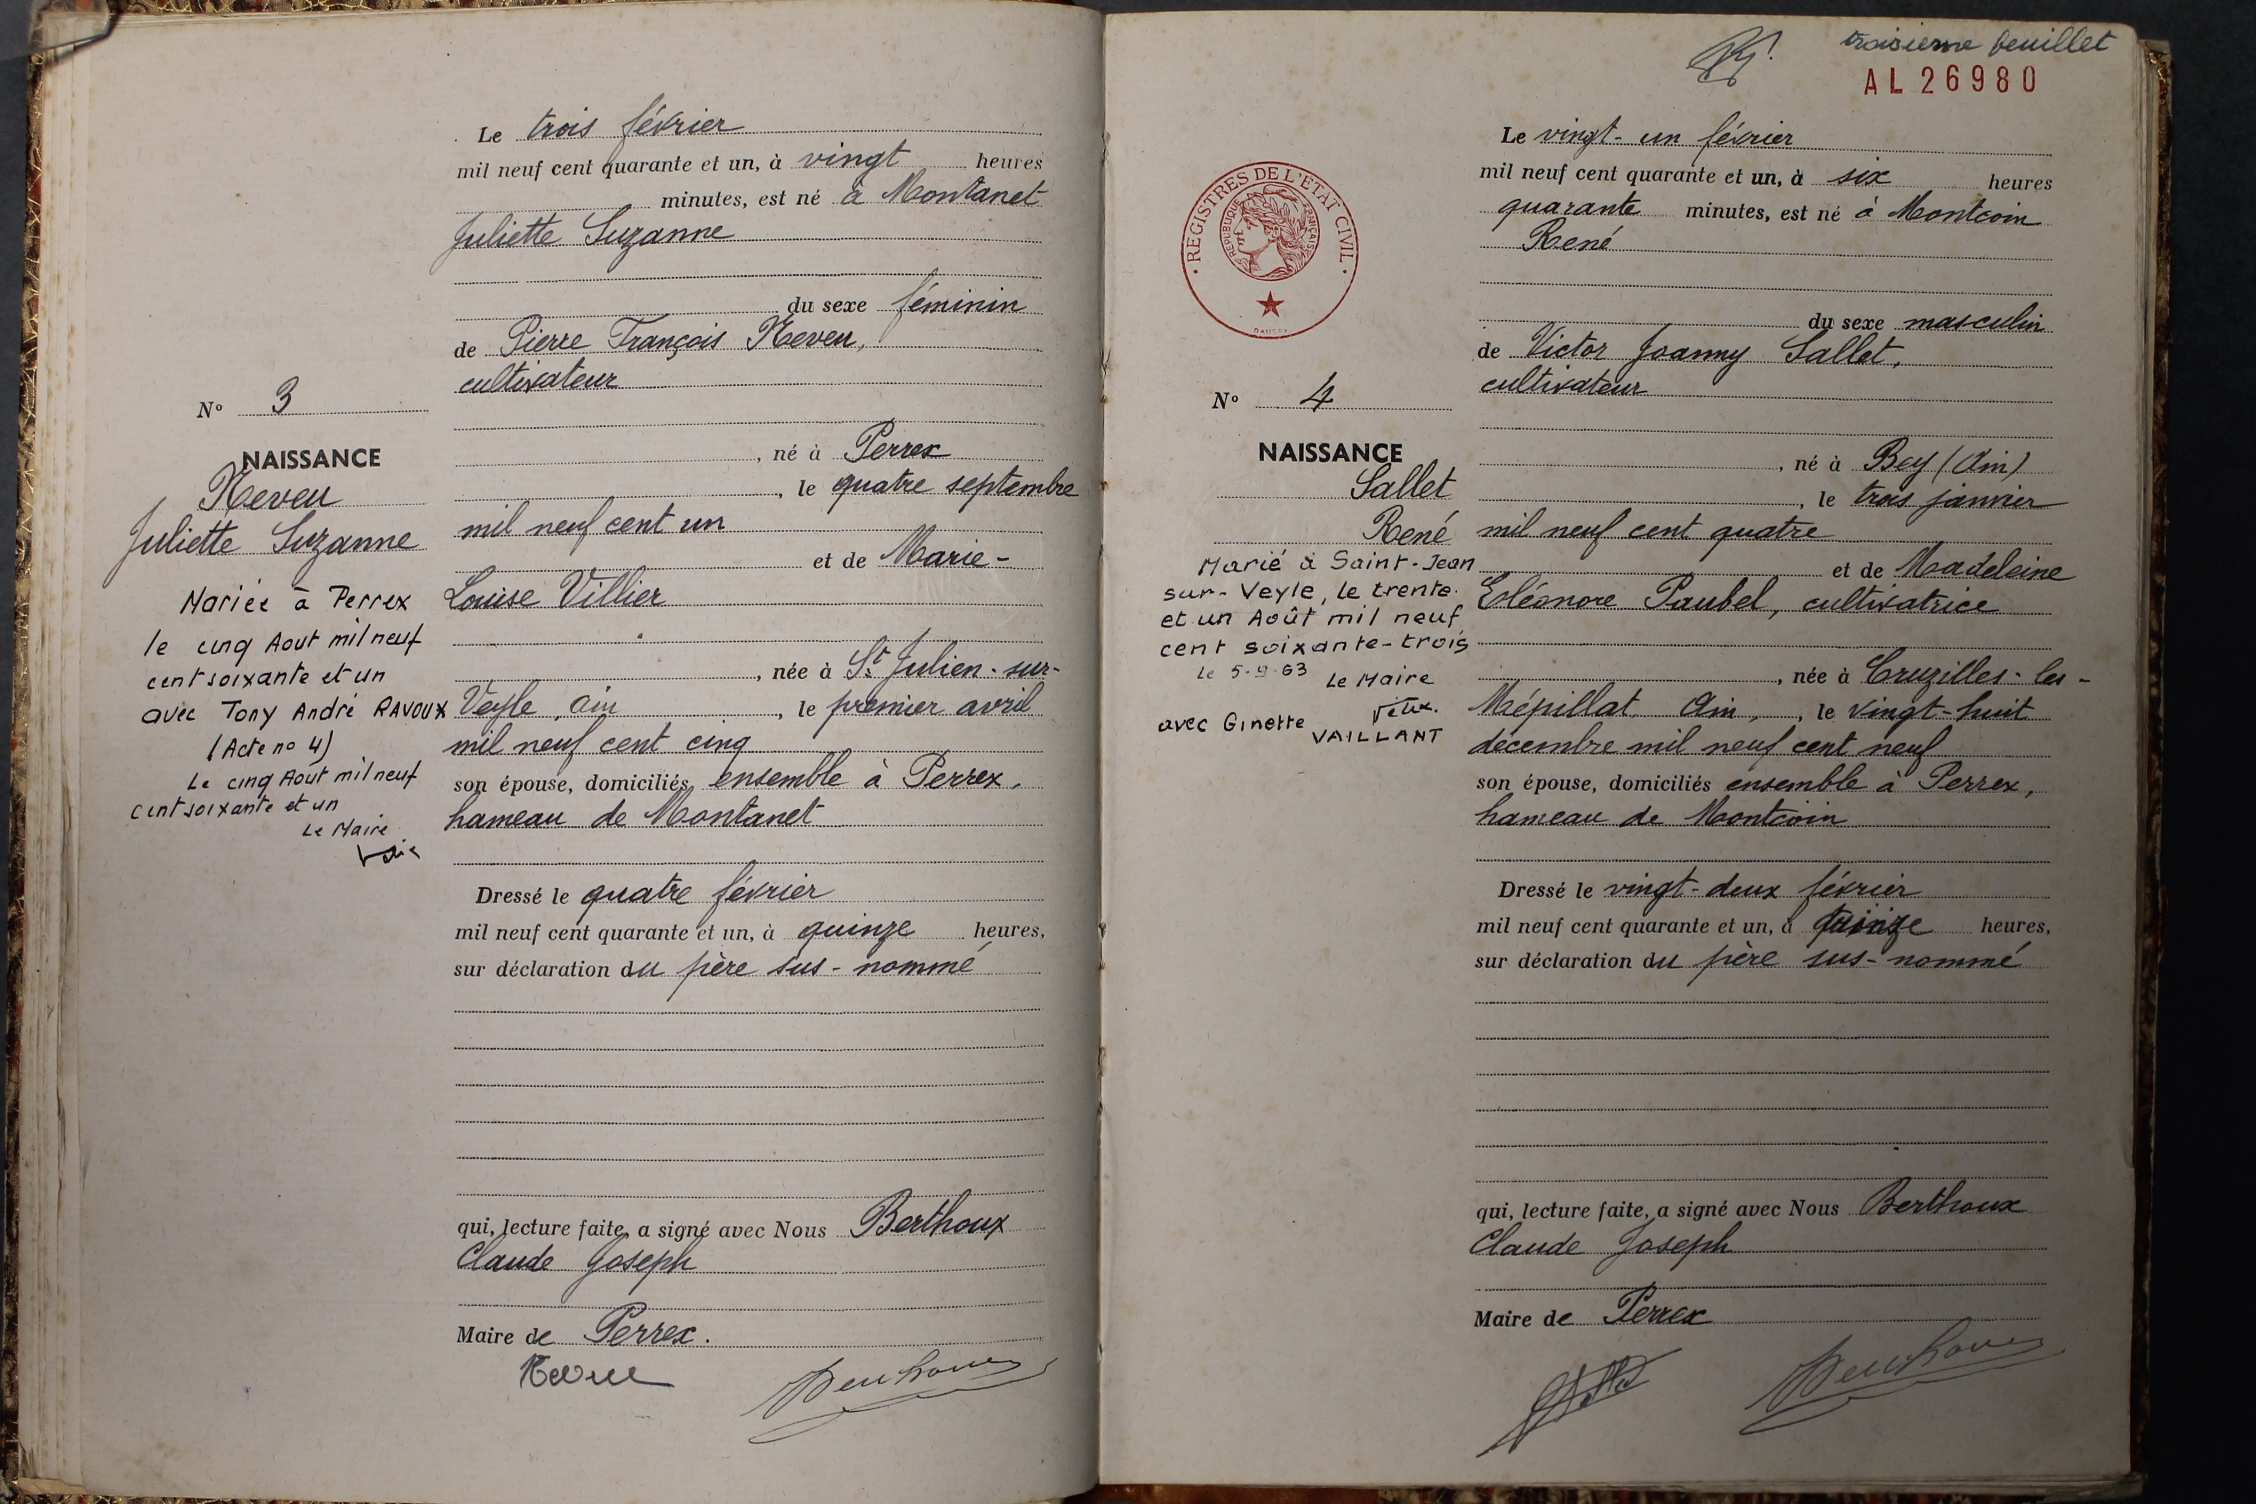 Le trois février
mil neuf cent quarante et un, à vingt heures
minutes, est né à Montanet
Juliette Suzanne
du sexe féminin
de Pierre François Neveu,
cultivateur
N° 3
NAISSANCE
Neveu
Juliette Suzanne
Mariée à Perrex
le cinq Aout mil neuf
cent soixante et un
avec Tony André RAVOUX
(Acte no 4)
Le cinq Aout mil neuf
cent soixante et un
Le Maire
, né à Perrex
, le quatre septembre
mil neuf cent un
et de Marie-
Louise Villier
, née à St Julien-sur-
Veyle, Ain , le premier avril
mil neuf cent cinq
son épouse, domiciliés ensemble à Perrex,
hameau de Montanet
Dressé le quatre février
mil neuf cent quarante et un, à quinze heures,
sur déclaration du père sus-nommé
qui, lecture faite, a signé avec Nous Berthoux
Claude Joseph
Maire de Perrex.
Neveu
troisième feuillet
AL 26980
REGISTRES DE L'ETAT CIVIL
REPUBLIQUE FRANÇAISE
Le vingt-un février
mil neuf cent quarante et un, à six heures
quarante minutes, est né à Montcoin
René
du sexe masculin
de Victor Joanny Sallet,
cultivateur
N° 4
NAISSANCE
Sallet
René
Marié à Saint-Jean
sur-Veyle, le trente
et un Août mil neuf
cent soixante-trois
le 5-9-63 Le Maire
avec Ginette VAILLANT
, né à Bey (Ain)
, le trois janvier
mil neuf cent quatre
et de Madeleine
Eléonore Paubel, cultivatrice
, née à Cruzilles-les-
Mépillat Ain, , le vingt-huit
décembre mil neuf cent neuf
son épouse, domiciliés ensemble à Perrex,
hameau de Montcoin
Dressé le vingt-deux février
mil neuf cent quarante et un, à quinze heures,
sur déclaration du père sus-nommé
qui, lecture faite, a signé avec Nous Berthoux
Claude Joseph
Maire de Perrex